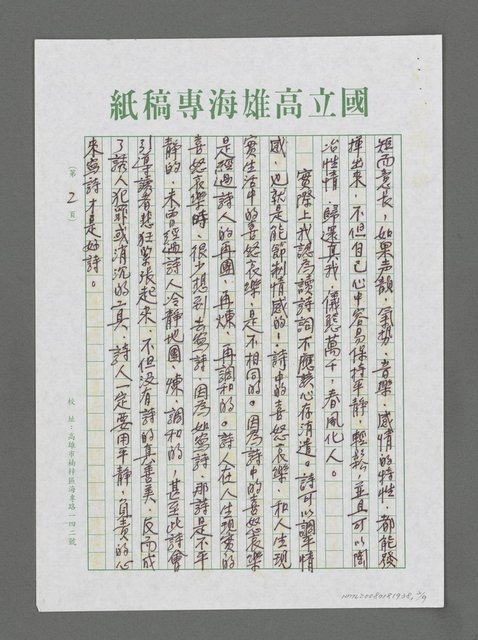 國立高雄海專稿紙
短而意長，如果声韻，氣勢、音樂、感情的特性，都能發
揮出來，不但自己心中容易保持平靜，輕鬆，並且可以陶
冶性情，歸還真我，儀態萬千，春風化人。
實際上我認為讀詩詞不應該心存消遣。詩可以調平情
感，也就是能節制情感的！詩中的喜怒哀樂，和人生現
實生活中的喜怒哀樂，是不相同的。因為詩中的喜怒哀樂
是經過詩人的再團，再煉，再調和的。詩人在人生現實的
喜怒哀樂時，很少想到去寫詩，因為如寫詩，那詩是不平
靜的，未曾經過詩人冷靜地團，煉，調和的，甚至此詩會
引導讀者悲狂緊張起來，不但沒有詩的真善美，反而成
了誘人犯罪或消沉的工具，詩人一定要用平靜，負責的心
來寫詩才是好詩。
（第 2 頁）
校 址：高雄市楠梓區海專路一四二號
NMTL20080181938, 2/9